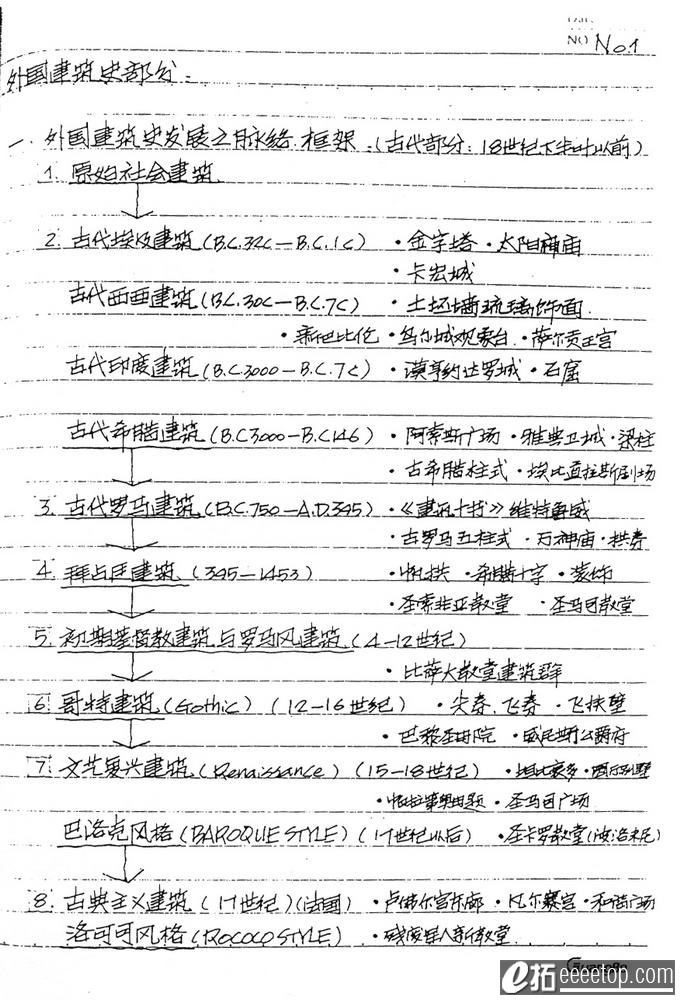 NO No.1
外国建筑史部分:
一、外国建筑史发展之脉络框架:(古代部分:18世纪下半叶以前)
1. 原始社会建筑
2. 古代埃及建筑(B.C.32C—B.C.1C) ·金字塔 ·太阳神庙
·卡宏城
古代西亚建筑(B.C.30C—B.C.7C) ·土坯墙琉璃饰面
·新巴比伦 ·乌尔城观象台 ·萨尔贡王宫
古代印度建筑(B.C.3000—B.C.7C) ·莫亨约达罗城 ·石窟
古代希腊建筑(B.C3000—B.C146) ·阿索斯广场 ·雅典卫城 ·梁柱
·古希腊柱式 ·埃比道拉斯剧场
3. 古代罗马建筑(B.C.750—A.D.395) ·《建筑十书》维特鲁威
·古罗马五柱式 ·万神庙 ·拱券
4. 拜占廷建筑(395—1453) ·帆拱 ·希腊十字 ·装饰
·圣索菲亚教堂 ·圣马可教堂
5. 初期基督教建筑与罗马风建筑(4—12世纪)
·比萨大教堂建筑群
6. 哥特建筑(Gothic)(12—16世纪) ·尖券、飞券 ·飞扶壁
·巴黎圣母院 ·威尼斯公爵府
7. 文艺复兴建筑(Renaissance)(15—18世纪) ·坦比哀多 ·圆厅别墅
·帕拉第奥母题 ·圣马可广场
巴洛克风格(BAROQUE STYLE)(17世纪以后) ·圣卡罗教堂(波洛米尼)
8. 古典主义建筑(17世纪)(法国) ·卢佛尔宫东廊 ·凡尔赛宫 ·和谐广场
洛可可风格(ROCOCO STYLE) ·残废军人新教堂
GuangBo
e拓 eeeetop.com